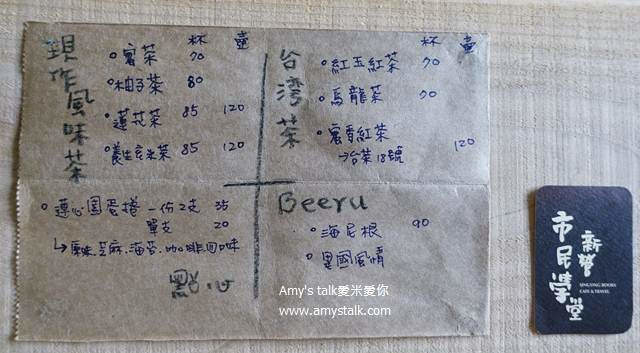 現作風味茶
杯 壺
蜜茶 70
柚子茶 80
蓮花茶 85 120
養生玄米茶 85 120
台灣茶
杯 壺
紅玉紅茶 70
烏龍茶 70
蜜香紅茶 120
→台茶18號
蓮心園蛋捲 一份2支 35
單支 20
↳原味.芝麻.海苔.咖啡四口味
點心
Beeru
海尼根 90
異國風情
Amy's talk愛米愛你
www.amystalk.com
新營
市民學堂
SINGYING BOOKS
CAFE & TRAVEL